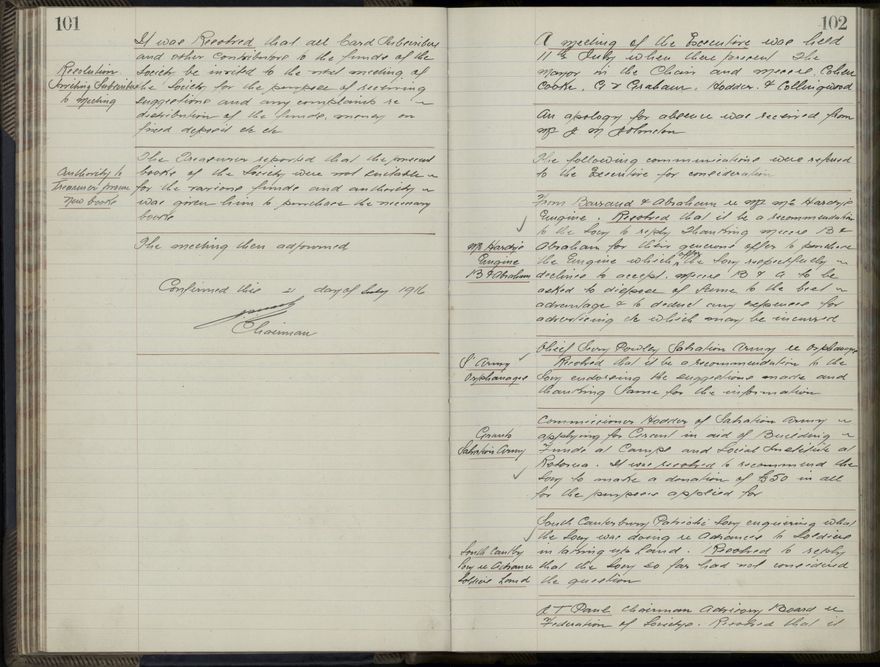 101
It was Resolved that all Card Subscribers
and other Contributors to the funds of the
Resolution
Inviting Subscribers
to meeting
Society be invited to the next meeting of
the Society for the purpose of receiving
suggestions and any complaints re
distribution of the funds, money on
fixed deposit etc etc
Authority to
Treasurer procure
New books
The Treasurer reported that the present
books of the Society were not suitable
for the various funds and authority
was given him to purchase the necessary
books
The meeting then adjourned
Confirmed this 2 day of July 1916
Chairman
102
A meeting of the Executive was held
11th July when there present The
Mayor in the Chair and messrs Cohen
Cooke, G Graham, Hodder & Collingwood
An apology for absence was received from
Mr J M Johnston
The following communications were referred
to the Executive for consideration
Mr Hardy's
Engine
B & Abraham
From Barraud & Abraham re Mr Hardy's
Engine. Resolved that it be a recommendation
to the Socy to reply thanking messrs B &
Abraham for their generous offer to purchase
the Engine which offer the Socy respectfully
declines to accept. messrs B & A to be
asked to dispose of same to the best
advantage & to deduct any expenses for
advertising etc which may be incurred
S' Army
Orphanages
Chief Secy Powley Salvation Army re Orphanages
Resolved that it be a recommendation to the
Socy endorsing the suggestions made and
thanking same for the information
Grants
Salvation Army
Commissioner Hodder of Salvation Army
applying for Grant in aid of Building
Funds at Camps and Social Institute at
Rotorua. It was resolved to recommend the
Socy to make a donation of £50 in all
for the purposes applied for
South Cantby
Socy re Advance
Soldiers Land
South Canterbury Patriotic Socy enquiring what
the Socy was doing re Advances to Soldiers
in taking up Land. Resolved to reply
that the Socy so far had not considered
the question
Paul Chairman Advisory Board re
Federation of Societys. Resolved that it